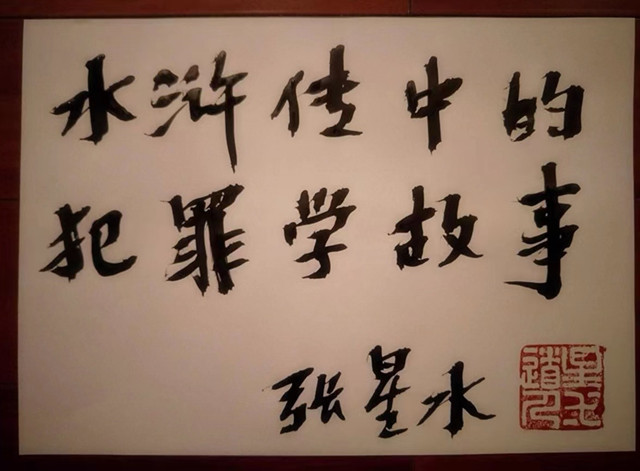 水浒传中的
犯罪学故事
张星水